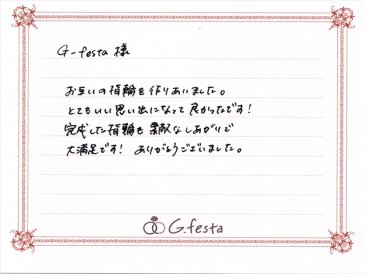 G-festa 様
お互いの指輪を作りあいました。
とてもいい思い出になって良かったです!
完成した指輪も素敵なしあがりで
大満足です! ありがとうございました。
G.festa